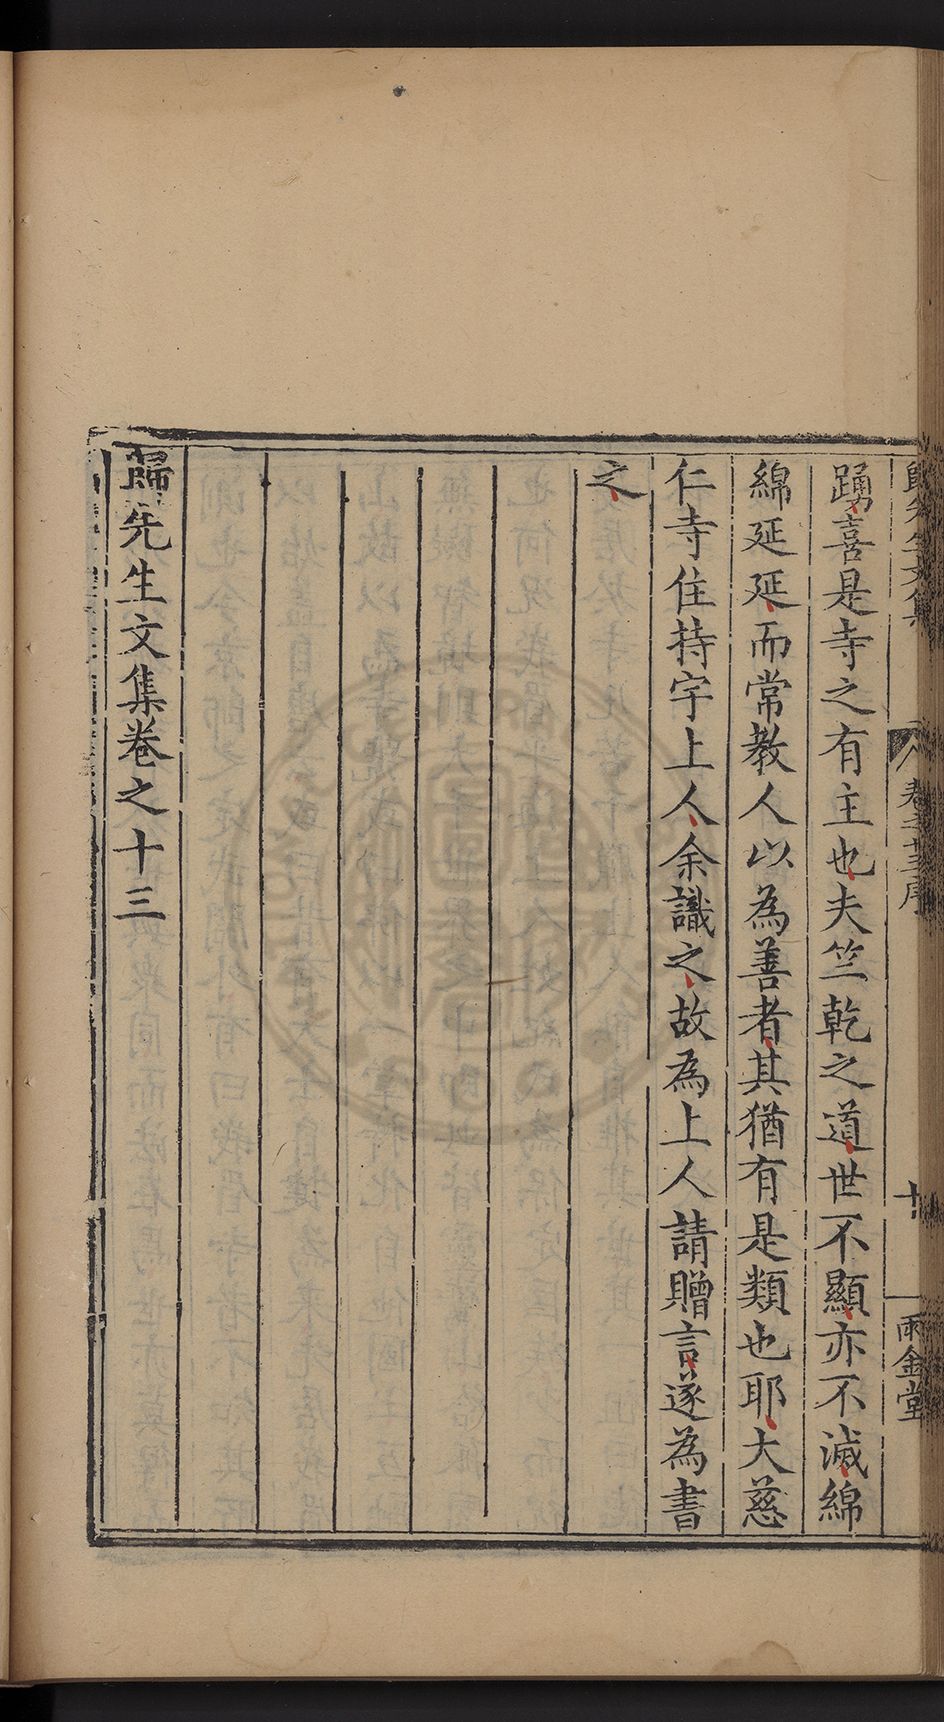 踴喜是寺之有主也夫竺乾之道世不顯亦不滅綿
綿延延而常教人以為善者其猶有是類也耶大慈
仁寺住持宇上人余識之故為上人請贈言遂為書
之
歸先生文集卷之十三
歸先生文集
卷之十三序
十
雨金堂